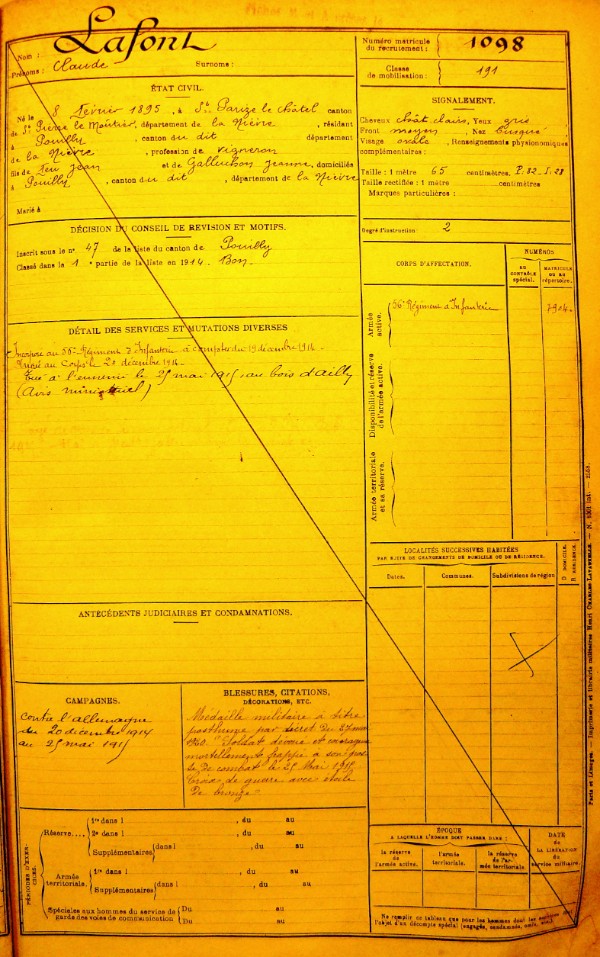 Nom : Lafont
Prénoms : Claude Surnoms :
Numéro matricule du recrutement : 1098
Classe de mobilisation : 191
ÉTAT CIVIL.
Né le 8 février 1895, à St Parize le Châtel canton
de St Pierre le Moutier, département de la Nièvre, résidant
à Pouilly, canton du dit département
de la Nièvre, profession de vigneron
fils de feu Jean et de Jeanne, domiciliés
à Pouilly, canton du dit, département de la Nièvre
Marié à
SIGNALEMENT.
Cheveux chât clairs, Yeux gris
Front moyen, Nez busqué
Visage ovale, Renseignements physionomiques
complémentaires :
Taille : 1 mètre 65 centimètres.
Taille rectifiée : 1 mètre centimètres
Marques particulières :
Degré d'instruction : 2
DÉCISION DU CONSEIL DE REVISION ET MOTIFS.
Inscrit sous le n° 47 de la liste du canton de Pouilly
Classé dans la 1e partie de la liste en 1914. Bon
CORPS D'AFFECTATION.
NUMÉROS
AU CONTRÔLE spécial.
MATRICULE OU AU répertoire.
Armée active.
56e Régiment d'Infanterie 7904
Disponibilité et réserve de l'armée active.
Armée territoriale et sa réserve.
DÉTAIL DES SERVICES ET MUTATIONS DIVERSES
Incorporé au 56me Régiment d'Infanterie à compter du 19 décembre 1914.
Arrivé au Corps le 20 décembre 1914.
Tué à l'ennemi le 25 mai 1915, au bois d'Ailly
(Avis ministériel)
LOCALITÉS SUCCESSIVES HABITÉES
PAR SUITE DE CHANGEMENTS DE DOMICILE OU DE RÉSIDENCE.
Dates. Communes. Subdivisions de région
D. DOMICILE.
R. RÉSIDENCE.
ANTÉCÉDENTS JUDICIAIRES ET CONDAMNATIONS.
CAMPAGNES.
Contre l'allemagne
du 20 décembre 1914
au 25 mai 1915
BLESSURES, CITATIONS,
DÉCORATIONS, ETC.
Médaille militaire à titre
posthume par décret du
1920. "Soldat dévoué et courageux
mortellement frappé à son pos
te de combat le 25 Mai 1915
Croix de guerre avec étoile
de bronze."
PÉRIODES D'EXERCICES.
Réserve....
1re dans l , du au
2e dans l , du au
Supplémentaires dans l , du au
Armée territoriale.
1re dans l , du au
Supplémentaires dans l , du au
Spéciales aux hommes du service de
gardes des voies de communication
Du au
Du au
ÉPOQUE
A LAQUELLE L'HOMME DOIT PASSER DANS :
la réserve de l'armée active.
l'armée territoriale.
la réserve de l'armée territoriale.
DATE de LA LIBÉRATION du service militaire.
Ne remplir ce tableau que pour les hommes dont les services
l'objet d'un décompte spécial (engagés, condamnés, omis, etc.)
Paris et Limoges. — Imprimerie et librairie militaires Henri CHARLES-LAVAUZELLE.